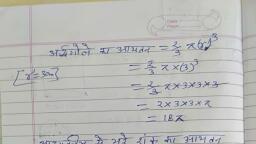 अर्धगोले का आयतन = 2/3 π(r)³
[r = 3cm] = 2/3 π × (3)³
= 2/3 π × 3 × 3 × 3
= 2 × 3 × 3 × π
= 18 π
से भरे का आयतन